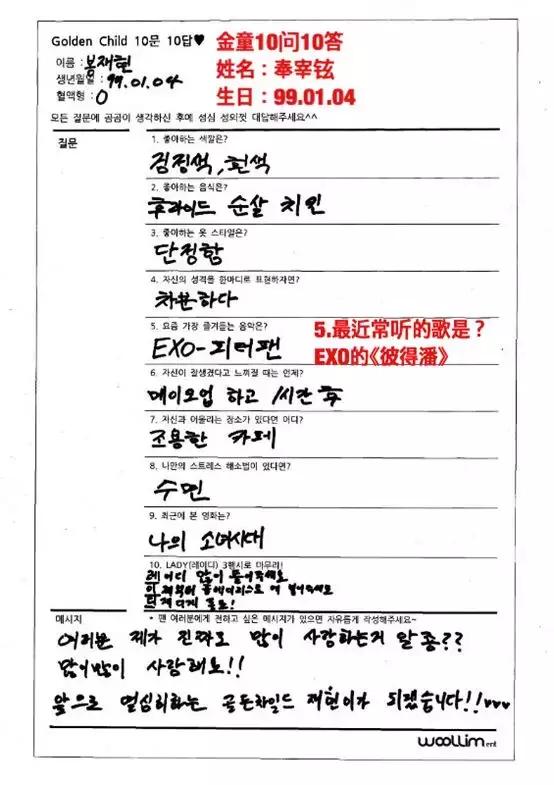 Golden Child 10문 10답♥ 金童10问10答
이름 : 봉재현 姓名：奉宰铉
생년월일 : 99.01.04 生日：99.01.04
혈액형 : O
모든 질문에 곰곰이 생각하신 후에 성심 성의껏 대답해주세요^^
질문
1. 좋아하는 색깔은?
검정색, 흰색
2. 좋아하는 음식은?
후라이드 순살 치킨
3. 좋아하는 옷 스타일은?
단정함
4. 자신의 성격을 한마디로 표현하자면?
차분하다
5. 요즘 가장 즐겨듣는 음악은? 5.最近常听的歌是？
EXO-피터팬 EXO的《彼得潘》
6. 자신이 잘생겼다고 느끼질 때는 언제?
메이크업 하고 1시간 후
7. 자신과 어울리는 장소가 있다면 어디?
조용한 카페
8. 나만의 스트레스 해소법이 있다면?
수면
9. 최근에 본 영화는?
나의 소녀시대
10. LADY(레이디) 3행시로 마무리!
레이디 많이 들어주세요
이제부터 플레이리스트에 넣어주세요
메시지
* 팬 여러분에게 전하고 싶은 메시지가 있으면 자유롭게 작성해주세요~
여러분 제가 진짜로 많이 사랑하는거 알죵??
많이많이 사랑해요!!
앞으로 열심히하는 골든차일드 재현이가 되겠습니다!!♥♥♥
woollim ent